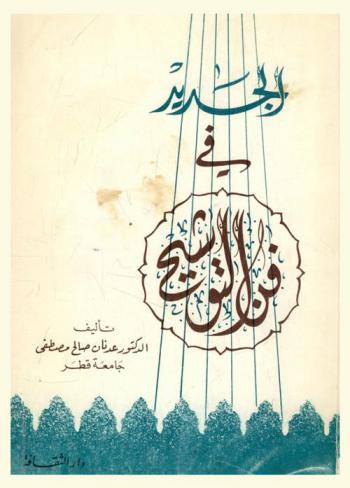 الجديد
في
فن التوشيح
تأليف
الدكتور عدنان صالح مصطفى
جامعة قطر
دار الثقافة